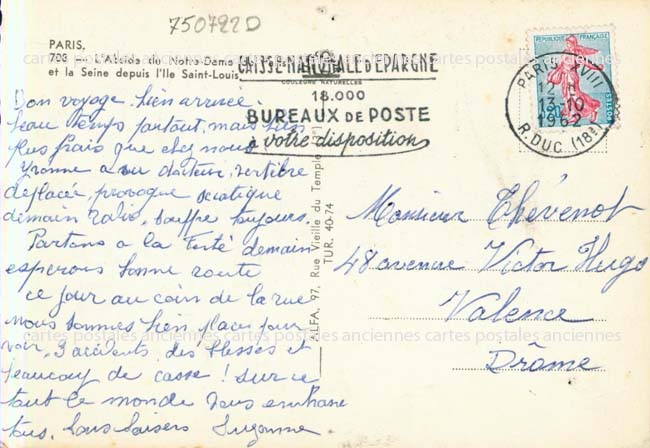 750722D
PARIS,
703 - L'Abside de Notre-Dame
et la Seine depuis l'Ile Saint-Louis
COULEURS NATURELLES
CAISSE NATIONALE D'EPARGNE
18.000
BUREAUX DE POSTE
à votre disposition
REPUBLIQUE FRANÇAISE
POSTES
PARIS XVIII
12 H
13-10
1962
R. DUC (18e)
Bon voyage, bien arrivée.
beau temps partout, mais bien
plus frais que chez nous
Yvonne a vu docteur, vertèbre
déplacée, provoque sciatique
demain radio, souffre toujours.
Partons a la Ferté demain
esperons bonne route
ce jour au coin de la rue
nous sommes bien places pour
voir, 3 accidents, des blesses et
beaucoup de casse ! sur ce
tout le monde vous embrasse
tous, bons baisers Suzanne
ALFA, 97, Rue Vieille du Temple
TUR. 40-74
Monsieur Thévenot
48 avenue Victor Hugo
Valence
Drôme
cartes postales anciennes cartes postales anciennes cartes postales anciennes